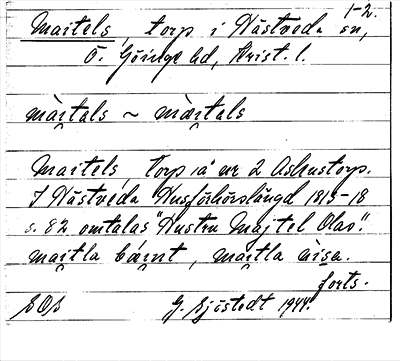 1-2.
Maitels, torp i Nästveda sn,
Ö. Göinge hd, Krist. l.
màitals ~ màitals
Maitels, torp å nr 2 Askustorp.
I Nästveda Husförhörslängd 1813-18
s. 82 omtalas "Hustru Majtel Olas".
maitla bárnt, maitla ùisa.
forts.
SOS G. Sjöstedt 1944.